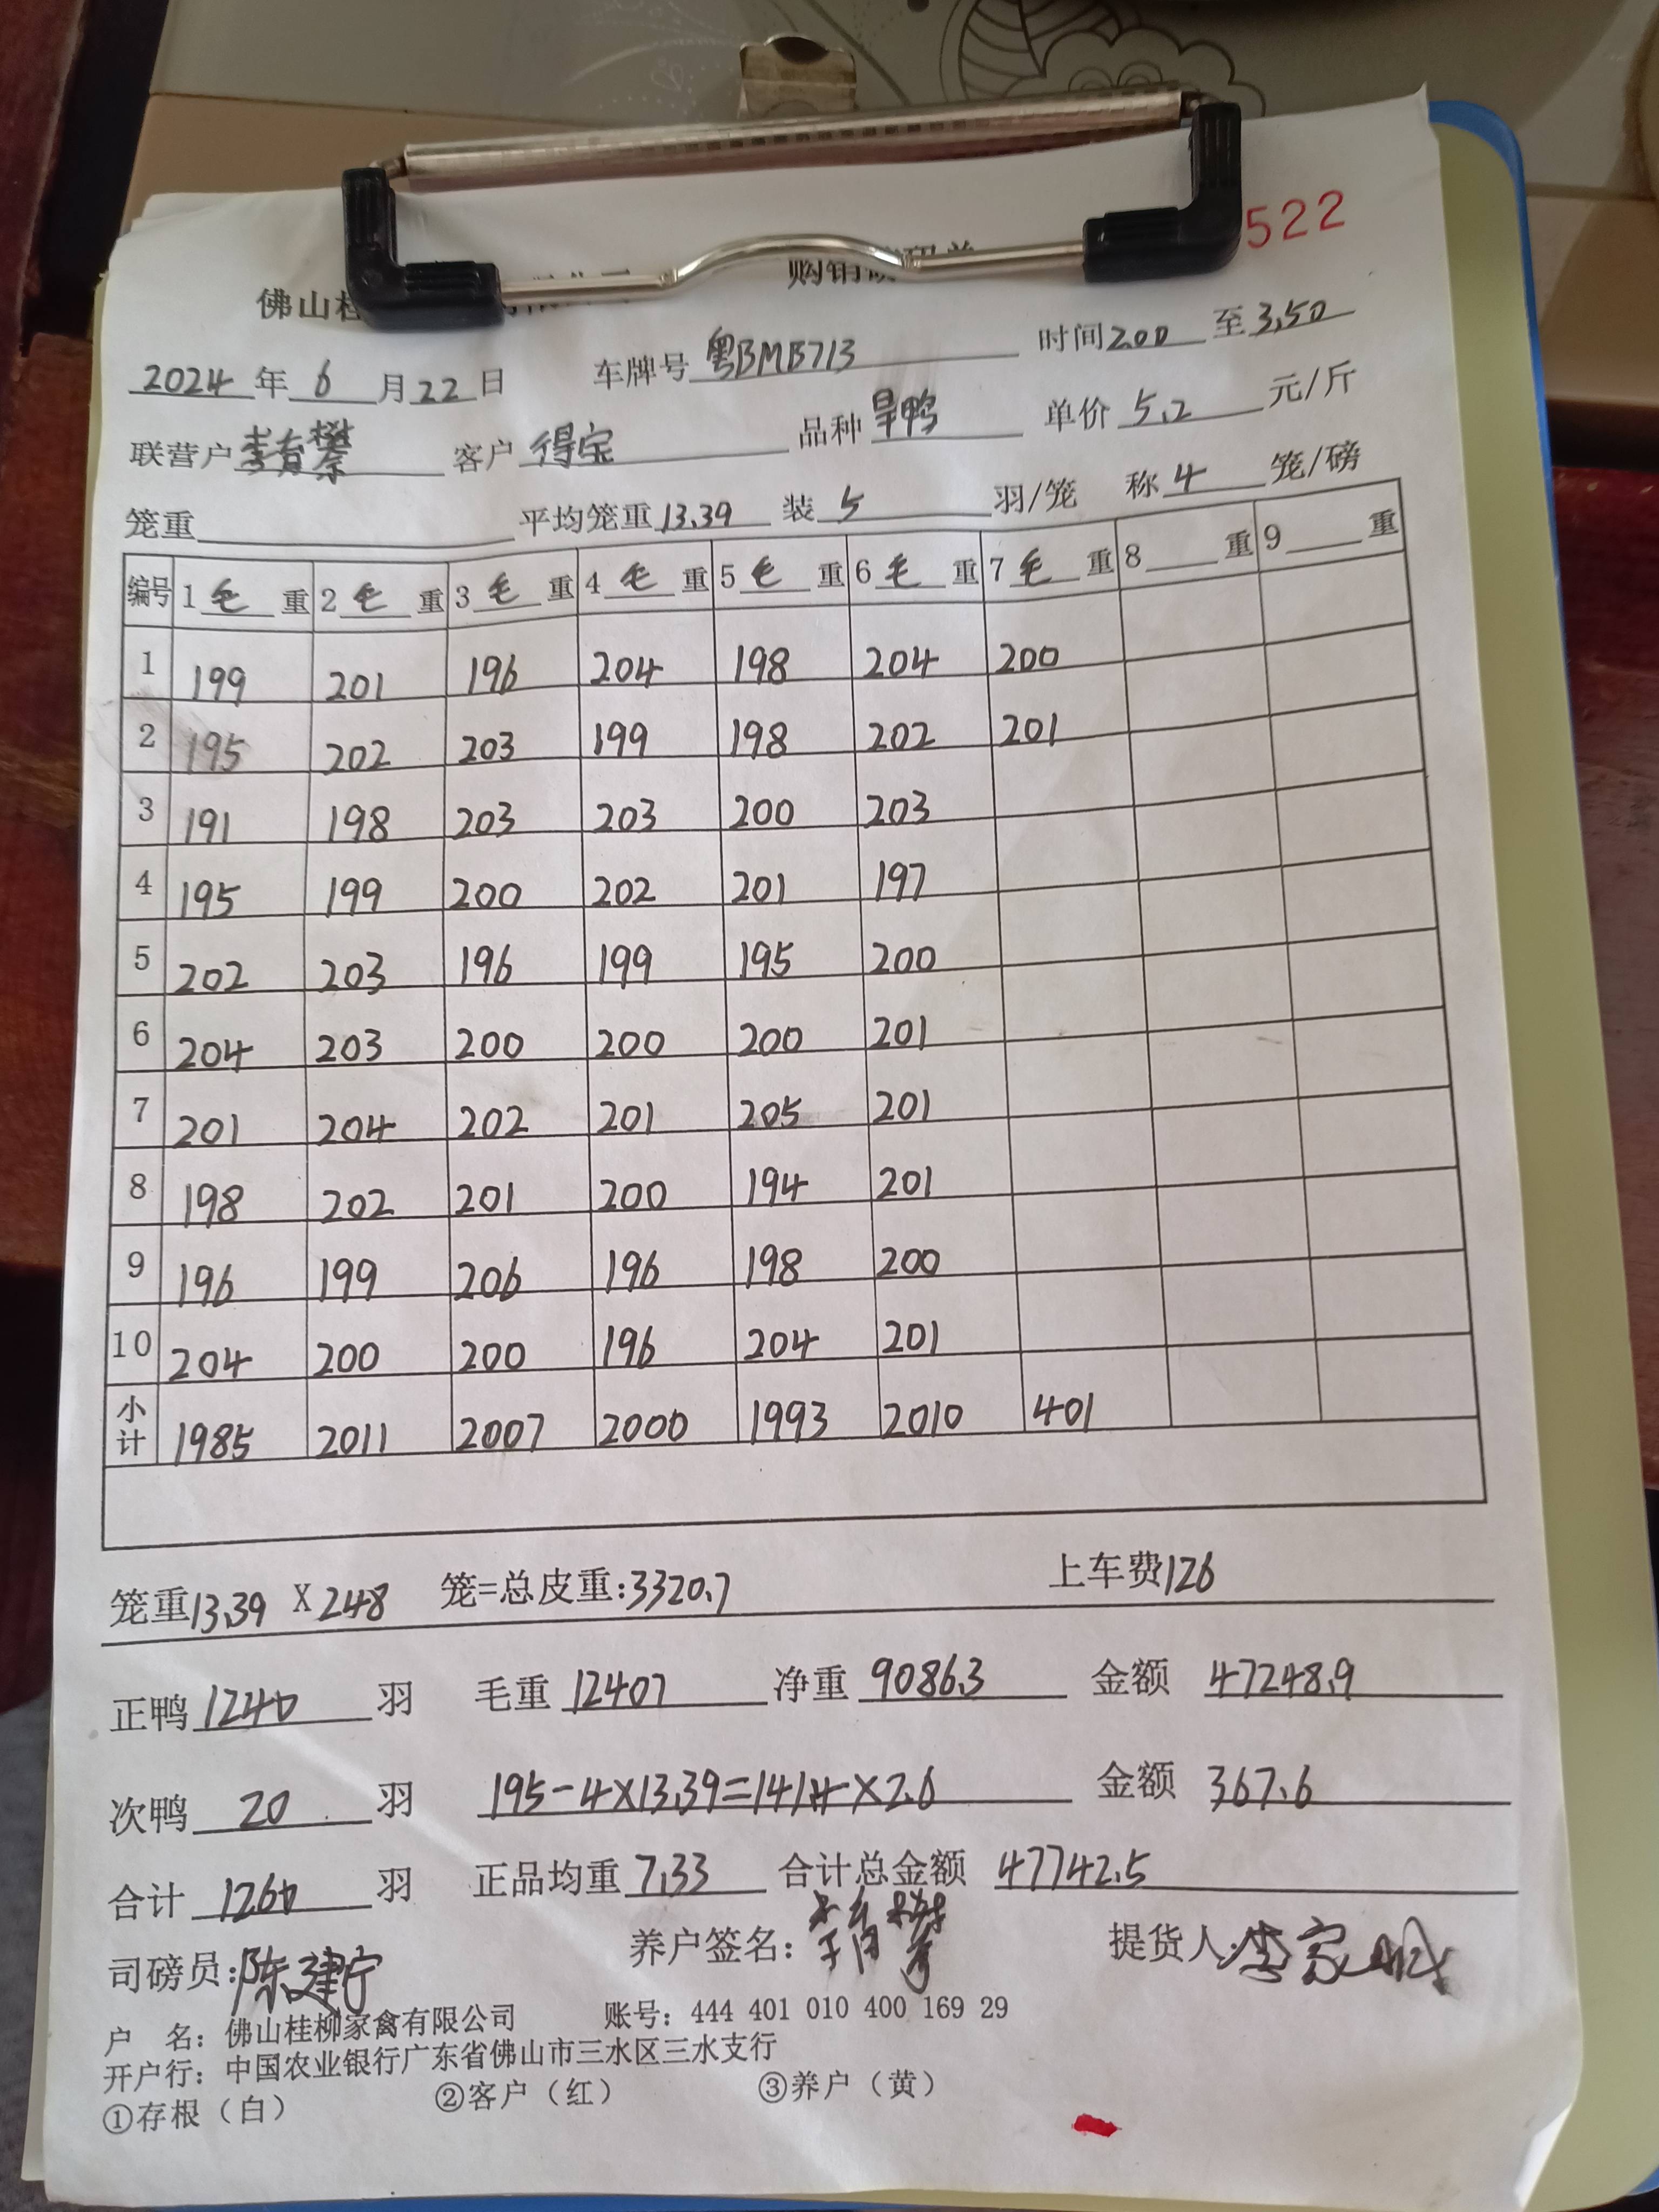 522
佛山桂 购销
2024 年 6 月 22 日 车牌号 粤BMB713 时间 2.00 至 3.50
联营户 李育攀 客户 得宝 品种 旱鸭 单价 5.2 元/斤
笼重 平均笼重 13.39 装 5 羽/笼 称 4 笼/磅
编号 1 毛 重 2 毛 重 3 毛 重 4 毛 重 5 毛 重 6 毛 重 7 毛 重 8 重 9 重
1 199 201 196 204 198 204 200
2 195 202 203 199 198 202 201
3 191 198 203 203 200 203
4 195 199 200 202 201 197
5 202 203 196 199 195 200
6 204 203 200 200 200 201
7 201 204 202 201 205 201
8 198 202 201 200 194 201
9 196 199 206 196 198 200
10 204 200 200 196 204 201
小计 1985 2011 2007 2000 1993 2010 401
笼重 13.39 X 248 笼=总皮重:3320.7 上车费 126
正鸭 1240 羽 毛重 12407 净重 9086.3 金额 47248.9
次鸭 20 羽 195-4×13.39=141.4×2.6 金额 367.6
合计 1260 羽 正品均重 7.33 合计总金额 47742.5
司磅员:陈建宁 养户签名: 李育攀 提货人:李家
户 名: 佛山桂柳家禽有限公司 账号: 444 401 010 400 169 29
开户行: 中国农业银行广东省佛山市三水区三水支行
①存根（白） ②客户（红） ③养户（黄）